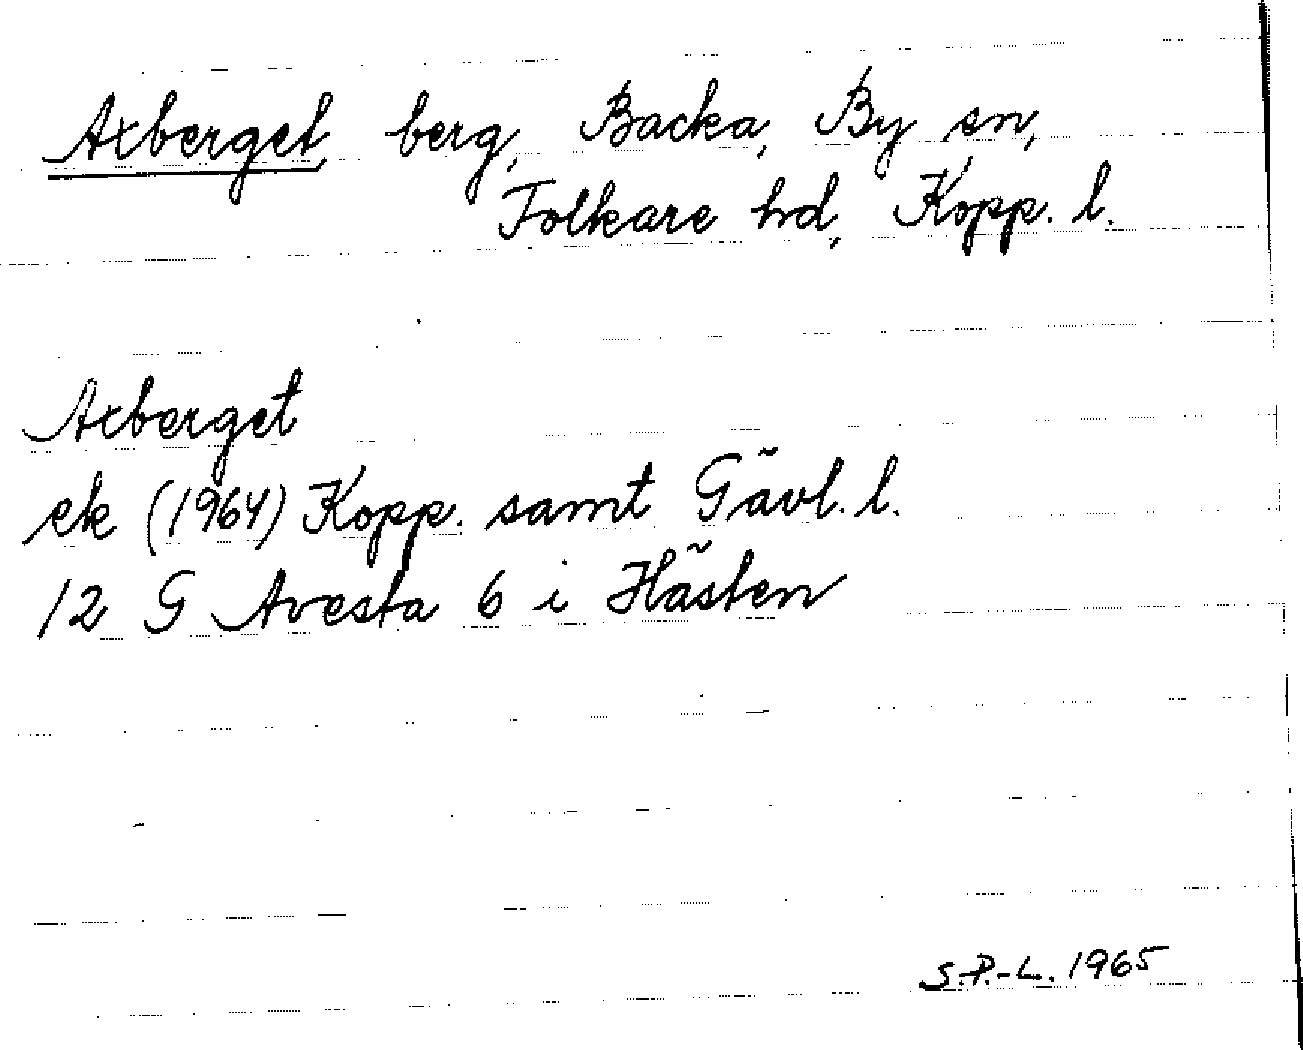 Axberget berg, Backa, By sn,
Folkare hd, Kopp. l.
Axberget
ek (1964) Kopp. samt Gävl. l.
12 G Avesta 6 i Hästen
S.P.-L. 1965